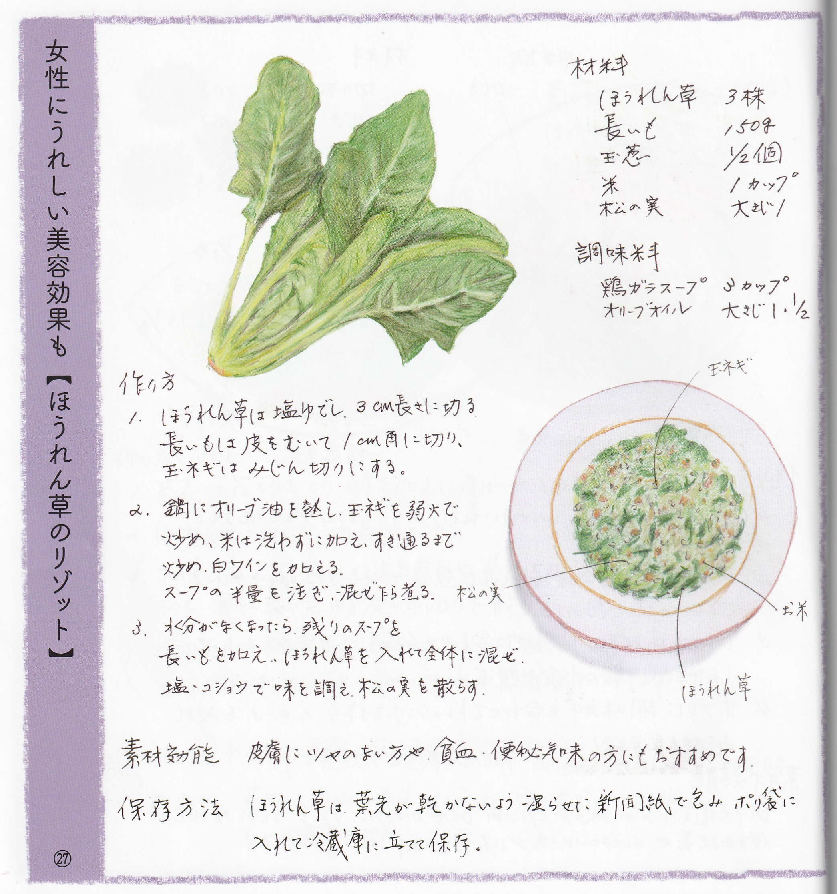 女性にうれしい美容効果も【ほうれん草のリゾット】
材料
ほうれん草 3株
長いも 150g
玉葱 1/2個
米 1カップ
松の実 大さじ1
調味料
鶏ガラスープ 3カップ
オリーブオイル 大さじ1・1/2
作り方
1. ほうれん草は塩ゆでし、3cm長さに切る
長いもは皮をむいて1cm角に切り、
玉ネギはみじん切りにする。
2. 鍋にオリーブ油を熱し、玉ネギを弱火で
炒め、米は洗わずに加え、すき通るまで
炒め、白ワインを加える。
スープの半量を注ぎ、混ぜ乍ら煮る。
3. 水分がなくなったら、残りのスープを
長いもを加え、ほうれん草を入れて全体に混ぜ、
塩・コショウで味を調え、松の実を散らす。
玉ネギ
松の実
お米
ほうれん草
素材効能 皮膚にツヤのない方や、貧血・便秘気味の方にもおすすめです。
保存方法 ほうれん草は、葉先が乾かないよう湿らせた新聞紙で包み ポリ袋に
入れて冷蔵庫に立てて保存。
㉗